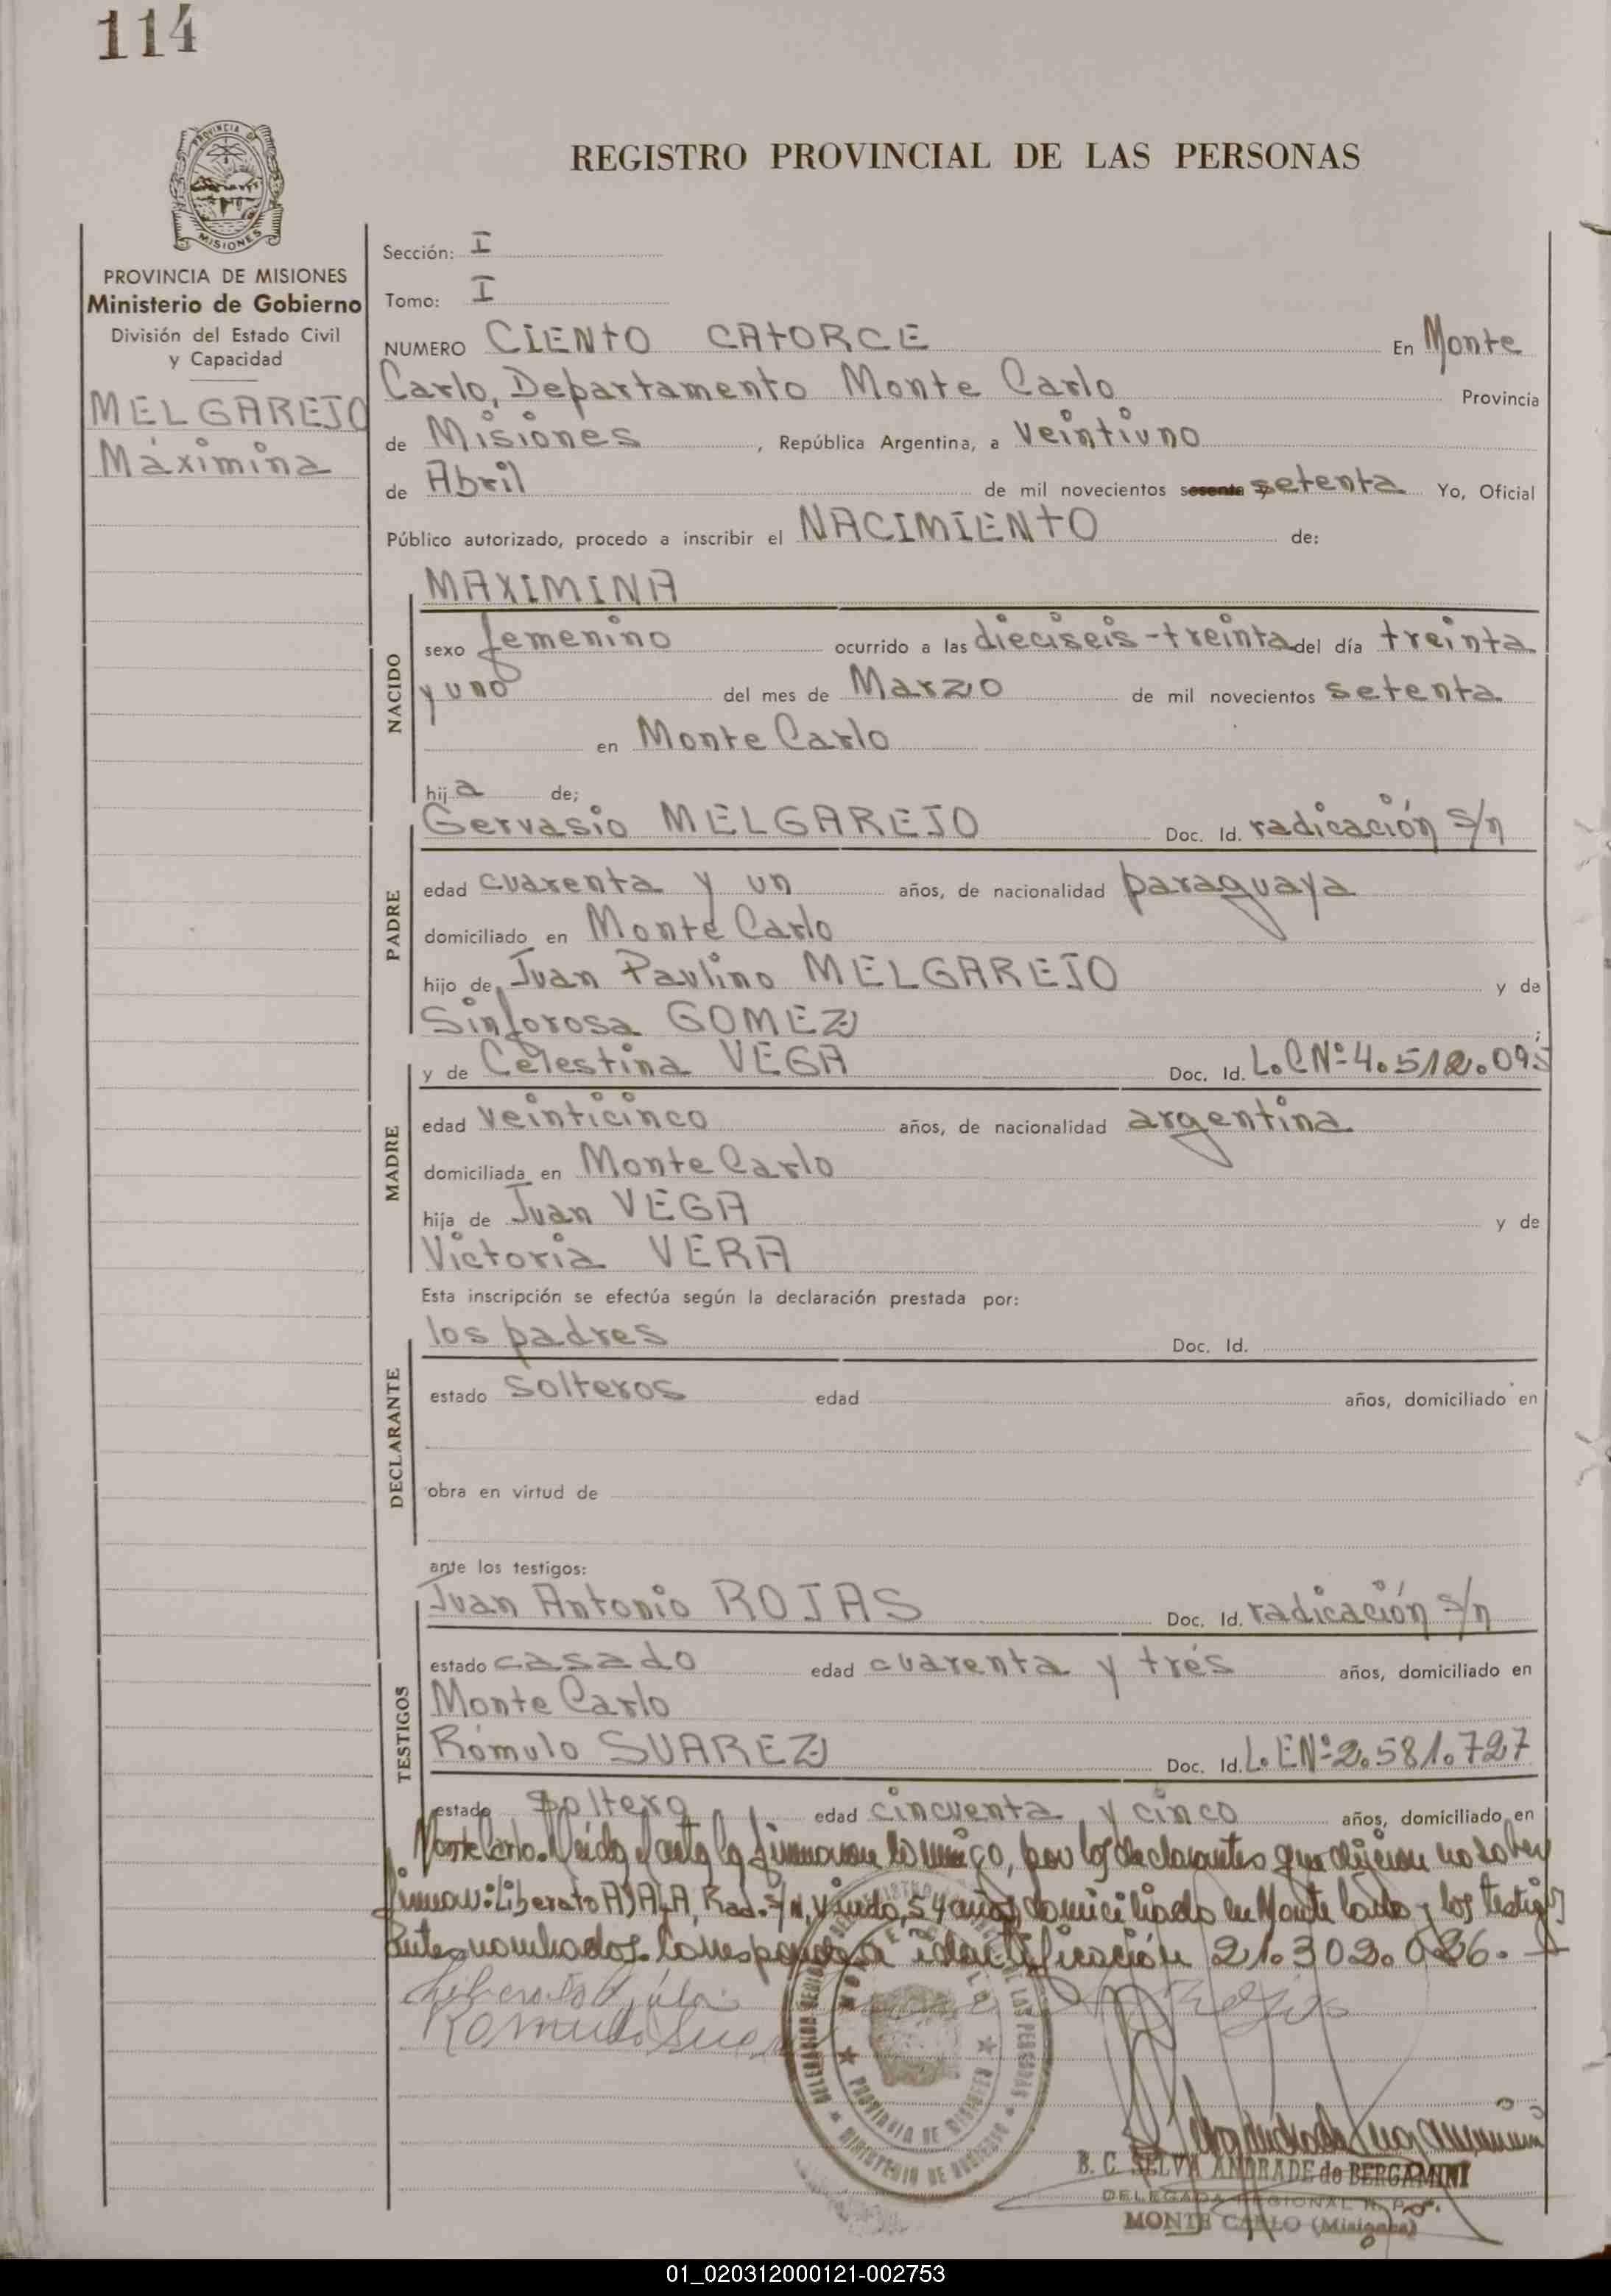 114
REGISTRO PROVINCIAL DE LAS PERSONAS
PROVINCIA DE MISIONES
Ministerio de Gobierno
División del Estado Civil
y Capacidad
MELGAREJO
Máximina
Sección: I
Tomo: I
NUMERO CIENTO CATORCE En Monte
Carlo, Departamento Monte Carlo Provincia
de Misiones, República Argentina, a veintiuno
de Abril de mil novecientos sesenta setenta Yo, Oficial
Público autorizado, procedo a inscribir el NACIMIENTO de:
NACIDO
MAXIMINA
sexo femenino ocurrido a las dieciseis-treinta del día treinta
y uno del mes de Marzo de mil novecientos setenta
en Monte Carlo
hija de;
PADRE
Gervasio MELGAREJO Doc. Id. radicación s/n
edad cuarenta y un años, de nacionalidad paraguaya
domiciliado en Monte Carlo
hijo de Juan Paulino MELGAREJO y de
Sinforosa GOMEZ ;
MADRE
y de Celestina VEGA Doc. Id. L.C Nº 4.512.095
edad veinticinco años, de nacionalidad argentina
domiciliada en Monte Carlo
hija de Juan VEGA y de
Victoria VERA
Esta inscripción se efectúa según la declaración prestada por:
DECLARANTE
los padres Doc. Id.
estado solteros edad años, domiciliado en
obra en virtud de
ante los testigos:
TESTIGOS
Juan Antonio ROJAS Doc. Id. radicación s/n
estado casado edad cuarenta y trés años, domiciliado en
Monte Carlo
Rómulo SUAREZ Doc. Id. L.E Nº 2.581.727
estado soltero edad cincuenta y cinco años, domiciliado en
Monte Carlo. Leída el acta la firmaron conmigo, por los declarantes que dijeron no saber
firmar: Liberato AYALA, Rad. s/n, viudo, 54 años, domiciliado en Monte Carlo y los testigos
antes nombrados. Corresponde a identificación 21.302.026.
Liberato Ayala
Romulo Suarez
PROVINCIA DE MISIONES
MINISTERIO DE GOBIERNO
B. C. SELVA ANDRADE de BERGAMINI
DELEGADA REGIONAL R. P. P.
MONTE CARLO (Misiones)
01_020312000121-002753